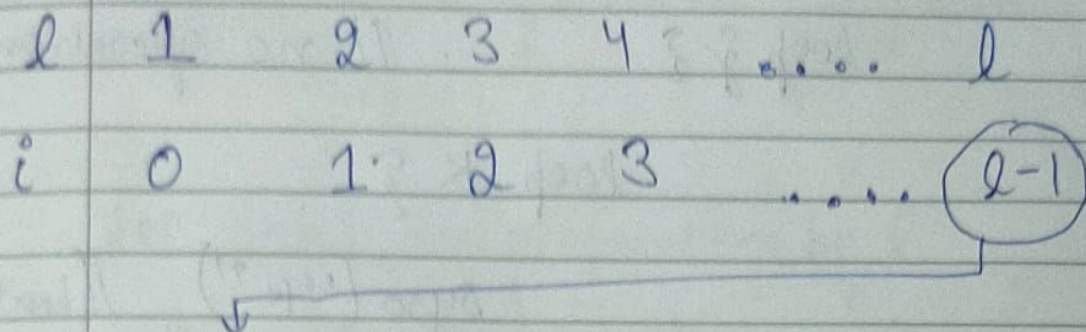 l 1 2 3 4 .... l
i 0 1 2 3 .... l-1